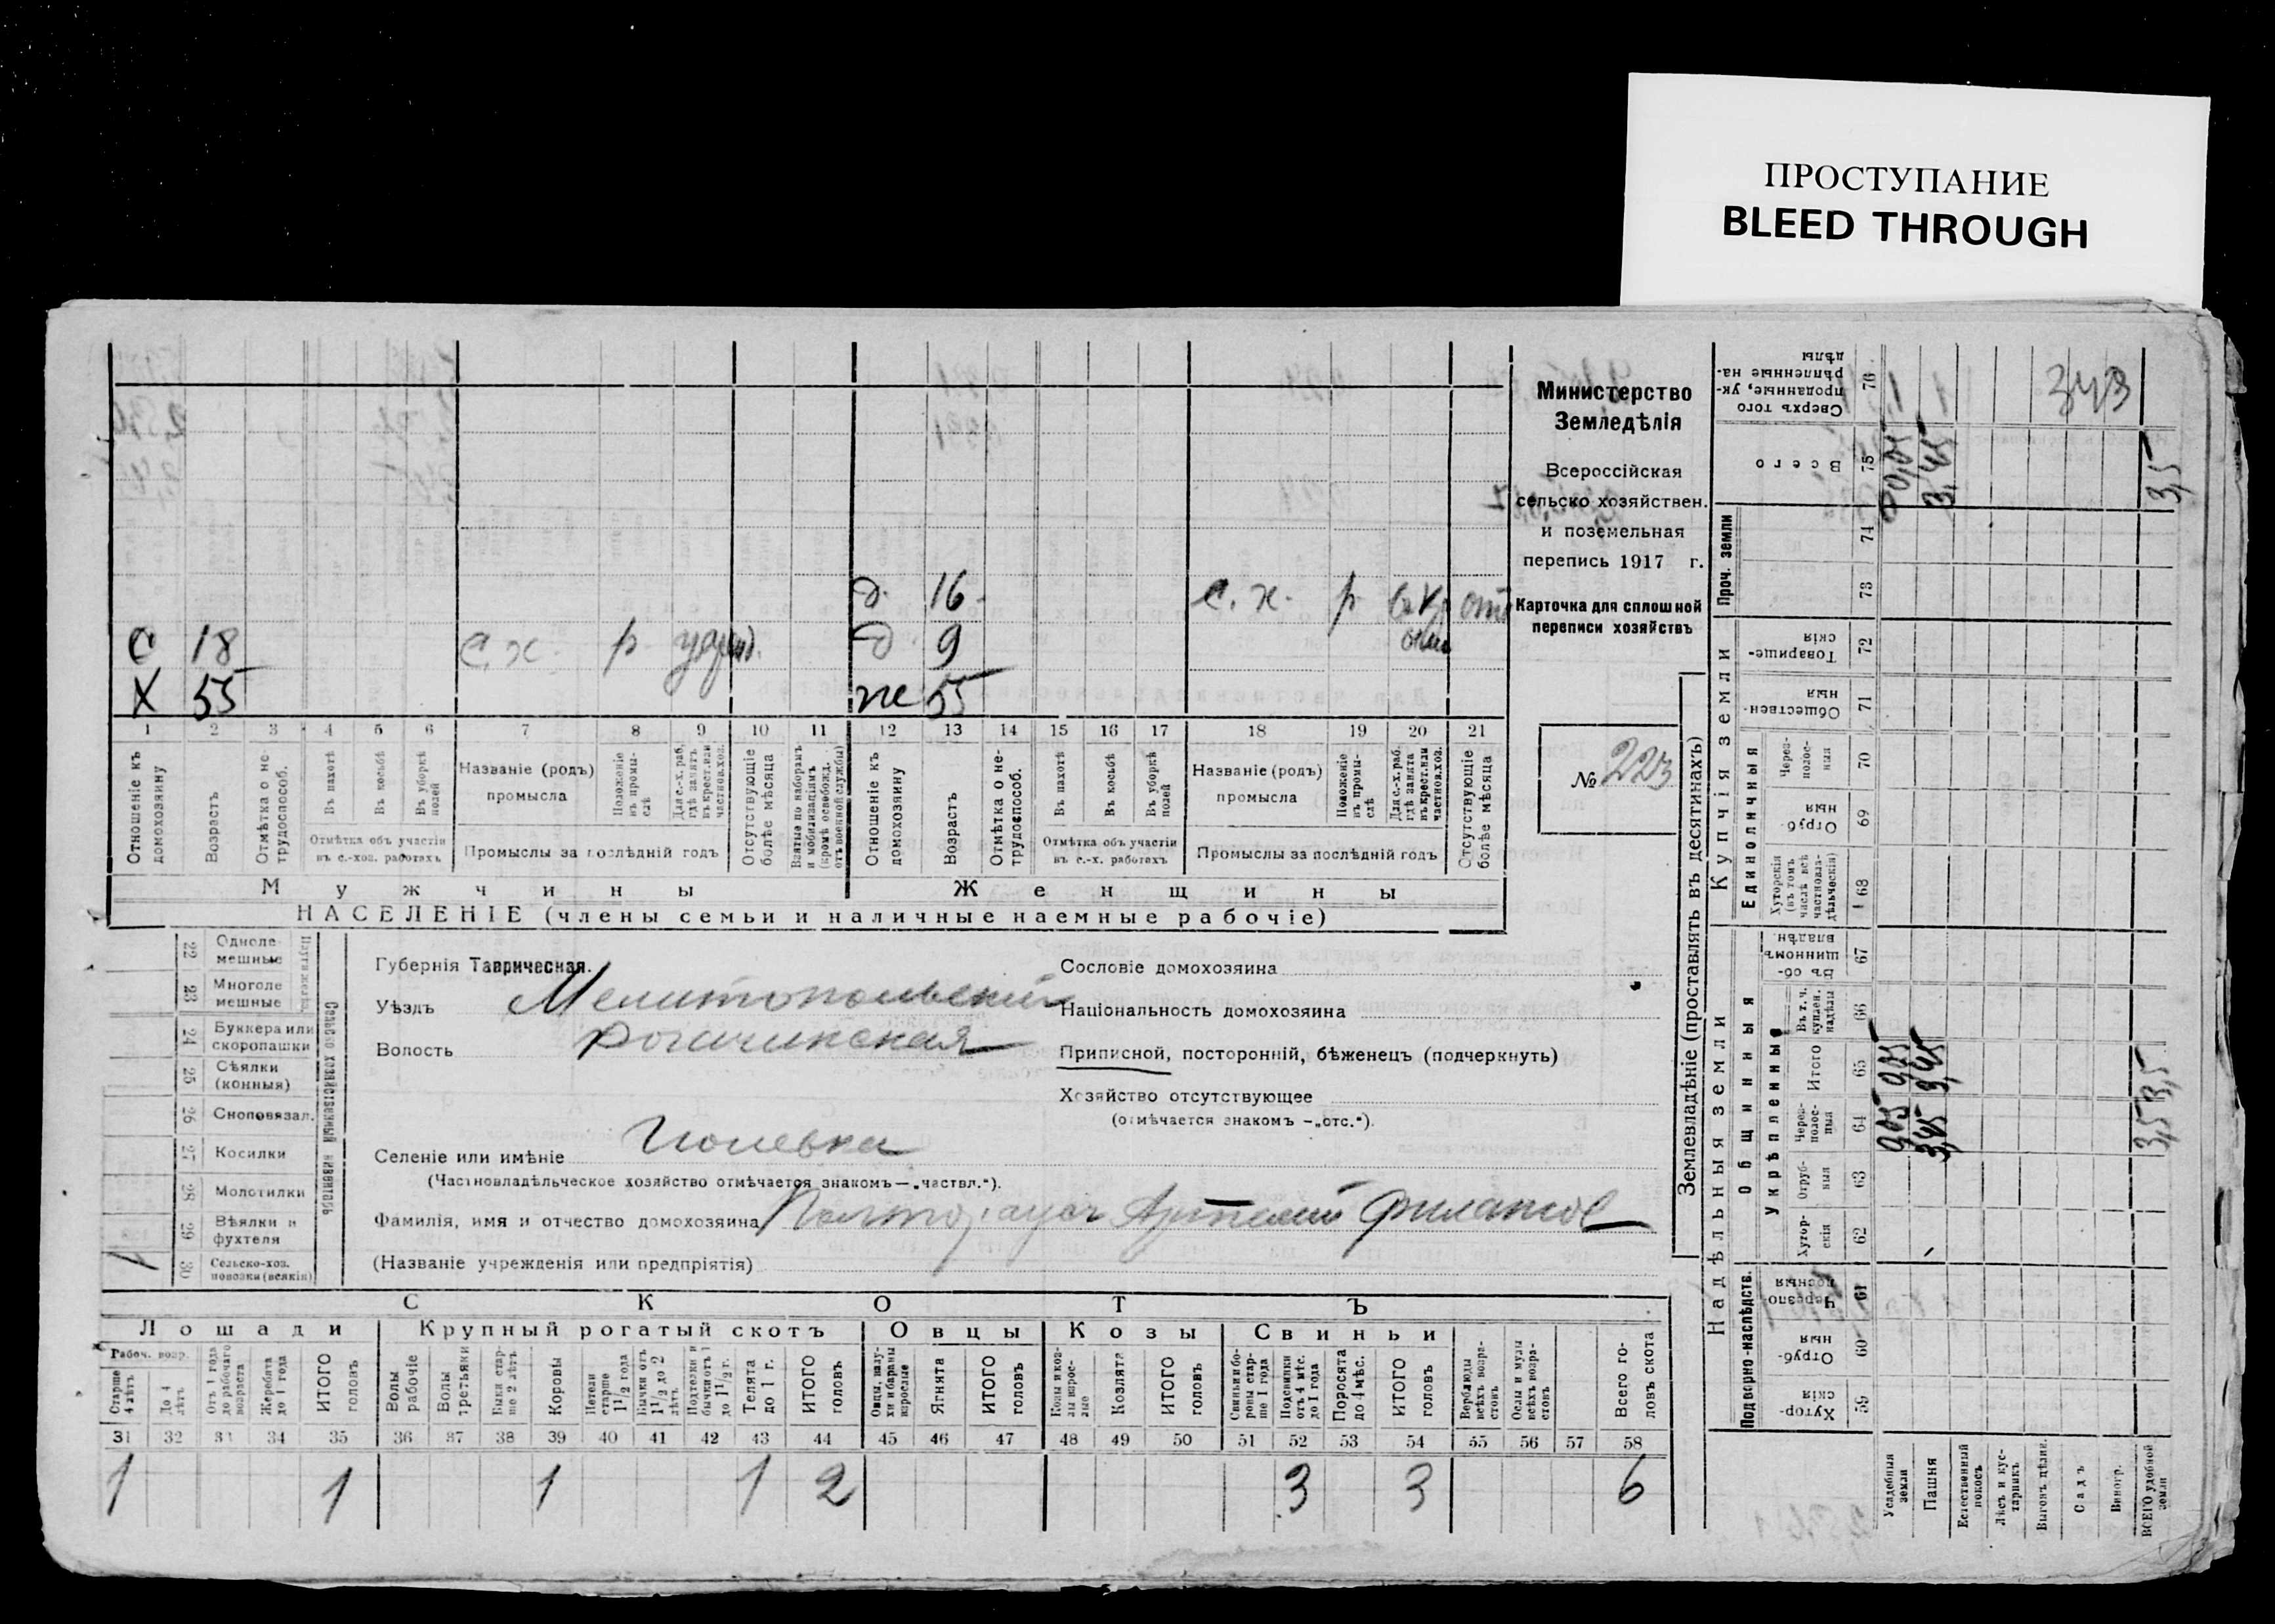 ПРОСТУПАНИЕ
BLEED THROUGH
Министерство
Земледѣлія
Всероссійская
сельско хозяйствен.
и поземельная
перепись 1917 г.
Карточка для сплошной
переписи хозяйствъ
№ 223
д. 16 с. х. р.
с 18 с. х. р. д. 9
х 55 ж 55
1 2 3 4 5 6 7 8 9 10 11 12 13 14 15 16 17 18 19 20 21
Отношеніе къ домохозяину
Возрастъ
Отмѣтка о не-трудоспособ.
Въ пахотѣ
Въ косьбѣ
Въ уборкѣ полей
Отмѣтка объ участіи въ с.-хоз. работахъ
Названіе (родъ) промысла
Положеніе въ промы-слѣ
Для с.-х. раб. гдѣ занятъ въ крест. или частнов. хоз.
Промыслы за послѣдній годъ
Отсутствующіе болѣе мѣсяца
Взятые по наборамъ и мобилизаціямъ (кромѣ освобожд. отъ военной службы)
Отношеніе къ домохозяину
Возрастъ
Отмѣтка о не-трудоспособ.
Въ пахотѣ
Въ косьбѣ
Въ уборкѣ полей
Отмѣтка объ участіи въ с.-х. работахъ
Названіе (родъ) промысла
Положеніе въ промы-слѣ
Для с.-х. раб. гдѣ занята въ крест. или частнов. хоз.
Промыслы за послѣдній годъ
Отсутствующіе болѣе мѣсяца
Мужчины Женщины
НАСЕЛЕНІЕ (члены семьи и наличные наемные рабочіе)
22 Одноле-мешные
23 Многоле мешные
24 Буккера или скоропашки
25 Сѣялки (конныя)
26 Сноповязал.
27 Косилки
28 Молотилки
29 Вѣялки и фухтеля
30 Сельско-хоз. повозки (всякія) 1
Сельско хозяйственный инвентарь
Губернія Таврическая.
Уѣздъ Мелитопольскій
Волость Рогачинская
Селеніе или имѣніе
(Частновладѣльческое хозяйство отмѣчается знакомъ—„частвл.“).
Фамилія, имя и отчество домохозяина
(Названіе учрежденія или предпріятія)
Сословіе домохозяина
Національность домохозяина
Приписной, посторонній, бѣженецъ (подчеркнуть)
Хозяйство отсутствующее
(отмѣчается знакомъ -„отс.“).
СКОТЪ
Лошади Крупный рогатый скотъ Овцы Козы Свиньи
Рабоч. возр.
Старше 4 лѣтъ
До 4 лѣтъ
Отъ 1 года до рабочаго возраста
Жеребята до 1 года
ИТОГО головъ
Волы рабочіе
Волы третьяки
Быки стар-ше 2 лѣтъ
Коровы
Нетели старше 1 1/2 года
Бычки отъ 1 1/2 до 2 лѣтъ
Подтелки и бычки отъ 1 до 1 1/2 г.
Телята до 1 г.
ИТОГО головъ
Овцы, валу-хи и бараны взрослые
Ягнята
ИТОГО головъ
Козы и коз-лы взрос-лые
Козлята
ИТОГО головъ
Свиньи и бо-ровы стар-ше 1 года
Подсвинки отъ 4 мѣс. до 1 года
Поросята до 4 мѣс.
ИТОГО головъ
Верблюды всѣхъ возра-стовъ
Ослы и мулы всѣхъ возра-стовъ
Всего го-ловъ скота
31 32 33 34 35 36 37 38 39 40 41 42 43 44 45 46 47 48 49 50 51 52 53 54 55 56 57 58
1 1 1 1 2 3 3 6
Землевладѣніе (проставлять въ десятинахъ)
Надѣльныя земли Купчія земли Проч. земли
Подворно-наслѣдств. Общинныя Единоличныя
Укрѣпленные
Хутор-скія 59
Отруб-ныя 60
Черезпо-лосныя 61
Хутор-скія 62
Отруб-ныя 63
Через-полос-ныя 64
Итого 65
Въ т. ч. куплен. надѣлы 66
Въ об-щинномъ владѣн. 67
Хуторскія (въ томъ числѣ всѣ частновла-дѣльческія) 68
Отруб-ныя 69
Через-полос-ныя 70
Обществен-ныя 71
Товарище-скія 72
73
74
Всего 75
Сверхъ того проданные, ук-рѣпленные на-дѣлы 76
Усадебныя земли
Пашня 3,45 3,45 3,45
Естественный покосъ
Лѣсъ и кус-тарникъ
Выгонъ цѣлин.
Садъ
Виногр.
ВСЕГО удобной земли 3,5 3,5 3,5
343